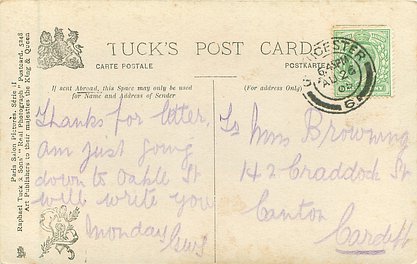 TUCK'S POST CARD
CARTE POSTALE
POSTKARTE
If sent Abroad, this Space may only be used
for Name and Address of Sender
(For address only)
Paris Salon Pictures. Série
Raphael Tuck & Sons' "Real Photograph" Postcard.
Art Publishers to their majesties the King & Queen
GLOUCESTER
AU 26
Thanks for letter,
am just going
down to Oakle St
will write you
Monday
To Miss Browning
142 Craddock St
Canton
Cardiff